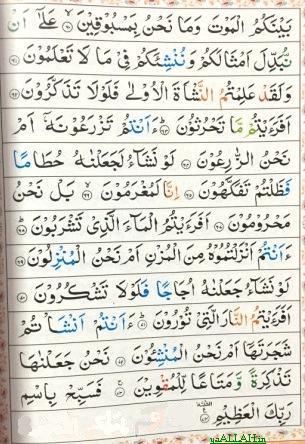 بَيْنَكُمُ الْمَوْتَ وَمَا نَحْنُ بِمَسْبُوْقِيْنَ ۝٦٠ عَلٰٓى اَنْ
نُّبَدِّلَ اَمْثَالَكُمْ وَنُنْشِئَكُمْ فِيْ مَا لَا تَعْلَمُوْنَ ۝٦١
وَلَقَدْ عَلِمْتُمُ النَّشْاَةَ الْاُوْلٰى فَلَوْلَا تَذَكَّرُوْنَ ۝٦٢
اَفَرَءَيْتُمْ مَّا تَحْرُثُوْنَ ۝٦٣ ءَاَنْتُمْ تَزْرَعُوْنَهٗٓ اَمْ
نَحْنُ الزّٰرِعُوْنَ ۝٦٤ لَوْ نَشَآءُ لَجَعَلْنٰهُ حُطَامًا
فَظَلْتُمْ تَفَكَّهُوْنَ ۝٦٥ اِنَّا لَمُغْرَمُوْنَ ۝٦٦ بَلْ نَحْنُ
مَحْرُوْمُوْنَ ۝٦٧ اَفَرَءَيْتُمُ الْمَآءَ الَّذِيْ تَشْرَبُوْنَ ۝٦٨
ءَاَنْتُمْ اَنْزَلْتُمُوْهُ مِنَ الْمُزْنِ اَمْ نَحْنُ الْمُنْزِلُوْنَ ۝٦٩
لَوْ نَشَآءُ جَعَلْنٰهُ اُجَاجًا فَلَوْلَا تَشْكُرُوْنَ ۝٧٠
اَفَرَءَيْتُمُ النَّارَ الَّتِيْ تُوْرُوْنَ ۝٧١ ءَاَنْتُمْ اَنْشَاْتُمْ
شَجَرَتَهَآ اَمْ نَحْنُ الْمُنْشِئُوْنَ ۝٧٢ نَحْنُ جَعَلْنٰهَا
تَذْكِرَةً وَّمَتَاعًا لِّلْمُقْوِيْنَ ۝٧٣ فَسَبِّحْ بِاسْمِ
رَبِّكَ الْعَظِيْمِ ۝٧٤
yaALLAH.in